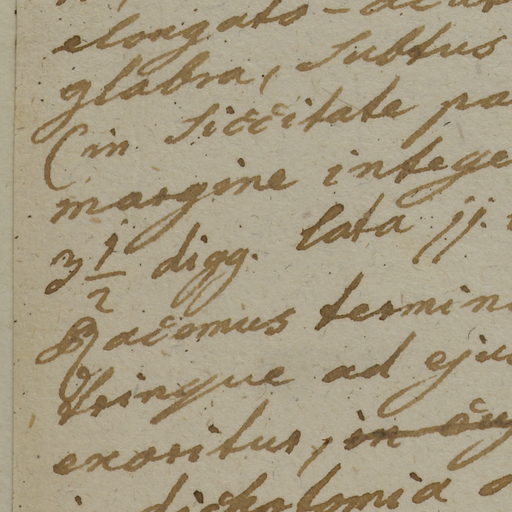 elongato-acu
glabra, subtus
(in siccitate pa
margine intege
3 1/2 digg. lata jj.
Racemus termin
trinque ad eju
exoritur, in
dichotomia